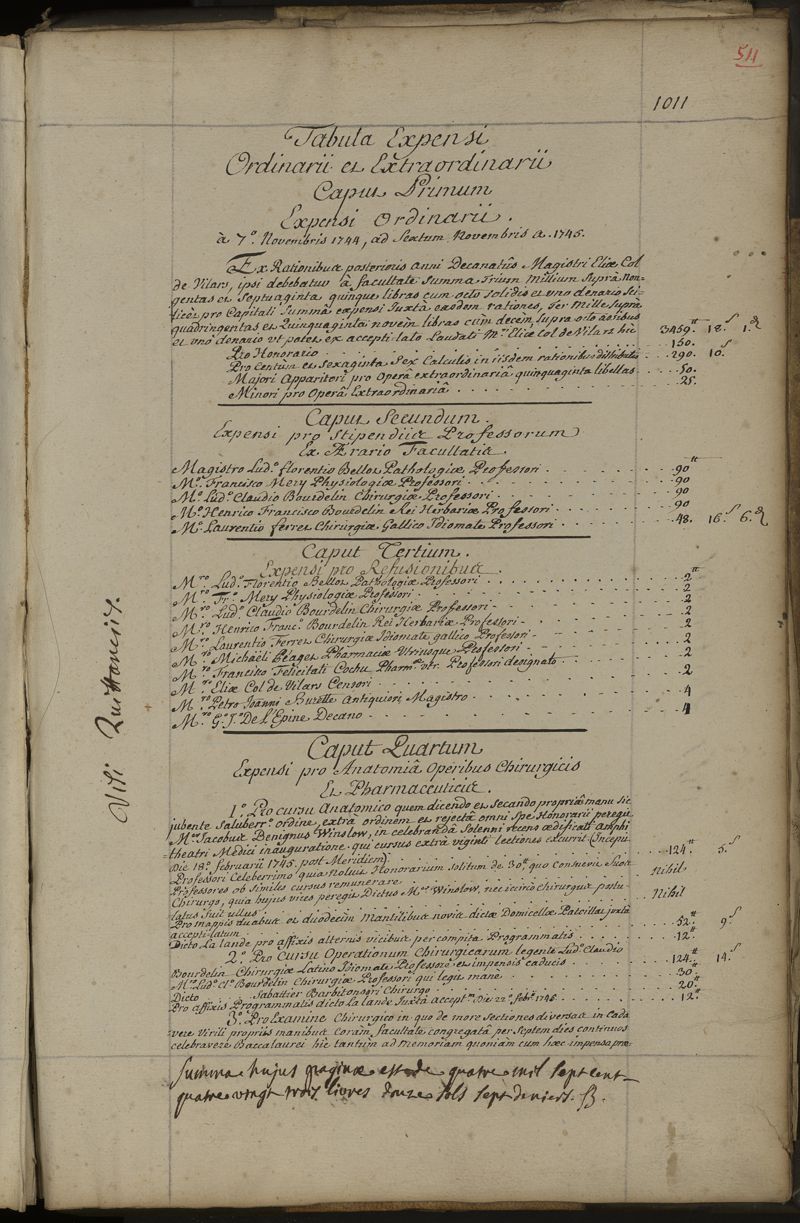 511
1011
Tabula Expensi
Ordinarii et Extraordinarii
Caput Primum
Expensi Ordinarii.
à 7.° Novembris 1744, ad Sextum Novembris a. 1745.
Ex Rationibus posterioris anni Decanatûs Magistri Eliæ Col
de Vilars, ipsi debebatur à facultate Summa Trium Millium Suprà Non-
gentas et Septuaginta quinque libras cum octo solidis et uno denario Sci-
licet pro Capitali Summâ expensi Juxtà easdem rationes, Ter Mille Suprà
quadringentas et Quinquaginta novem libras cum decem supra octo assibus
et uno denario ut patet ex accepti lato Laudati M.ri Eliæ Col de Vilars hic 3459.tt 18.s 1.d
Pro Honorario . . . . 160.
Pro Centum et Sexaginta Sex Calculis in iisdem rationibus distributis 290. 10.s
Majori Apparitori pro Operâ extraordinariâ quinquaginta libellas . . . 50.
Minori pro Operâ Extraordinariâ . . . . 25.
Caput Secundum.
Expensi pro Stipendiis Professorum
Ex Ærario Facultatis.
Magistro Lud.° florentio Bellot Pathologiæ Professori . . . . 90tt
M.° Francisco Mery Physiologiæ Professori . . . . 90
M.° Lud.° Claudio Bourdelin Chirurgiæ Professori . . . . 90
M.° Henrico Francisco Bourdelin Rei Herbariæ Professori . . . . 90
M.° Laurentio ferret Chirurgiæ Gallico Idiomate Professori . . . . 48. 16.s 6.d
Caput Tertium.
Expensi pro Refusionibus
M.ro Lud.° Florentio Bellot Pathologiæ Professori . . . . 2tt
M.ro Fr.° Mery Physiologiæ Professori . . . . 2
M.ro Lud.° Claudio Bourdelin Chirurgiæ Professori - . . . . 2
M.ro Henrico Franc.° Bourdelin Rei Herbariæ Professori - . . . . 2
M.ro Laurentio Ferret Chirurgiæ Idiomate gallico Professori - . . . . 2
M.ro Michaeli Peaget Pharmaciæ Utriusque Professori - . . . . 2
M.ro Francisco Felicitati Cochu Pharm. utr. Professori designato . . . . 2
M.ro Eliæ Col de Vilars Censori . . . . 2
M.ro Petro Joânni Burette Antiquiori Magistro . . . . 4
M.ro G.° J.° De L'Epine Decano . . . . 4
Caput Quartum
Expensi pro Anatomiâ Operibus Chirurgicis
Et Pharmaceuticis.
1.° Pro cursu Anatomico quem dicendo et Secando propriâ manu sic
jubente Saluberr.° ordine, extrà ordinem et rejectâ omni Spe Honorarii peregit
M.r Jacobus Benignus Winslow, in celebrandâ Solenni recens ædificati Amphi
theatri Medici inauguratione. qui cursus extrà viginti lectiones excurrit (Incepit
Die 18.a februarii 1745. post Meridiem) . . . . 124.tt 5.s
Professori Celeberrimo quia Noluit Honorarium Solitum de 30.tt quo Consuevit Suos
Professores ob Similis cursus remunerare . . . . Nihil
Chirurgo, quia hujus vices peregit Dictus M.r Winslow, nec iccircò chirurgus postu-
latus fuit ullus . . . . Nihil
Pro mappis duabus et duodecim Mantilibus novis dictæ Domicellæ
accepti latum . . . . 52.tt 9.s
Dicto La lande pro affixis alternis vicibus per compita Programmatis . . . . 12.tt
2.° Pro Cursu Operationum Chirurgicarum legente Lud.° Claudio
Bourdelin Chirurgiæ Latino Idiomate Professore et impensis caducis . . . . 124.tt 14.s
M.° Lud.° Cl.° Bourdelin Chirurgiæ Professori qui legit mane . . . . 30.
Dicto Sabattier Barbitonsori Chirurgo . . . . 20.tt
Pro affixis Programmatis dicto La lande Juxtà accept.m Die 22.a feb.rii 1745 . . . . 12.tt
3.° Pro Examine Chirurgico in quo de more Sectiones diversas in Cada
vere Virili propriis manibus Coràm facultate congregatâ per Septem dies continuos
celebravere Baccalaurei hic tantùm ad Memoriam quoniam cum hæc impensa præ
Summa hujus paginæ est de quatre mil Sept cent
quatre vingt trois livres douze sols Sept deniers.
Visi Quittanciis.